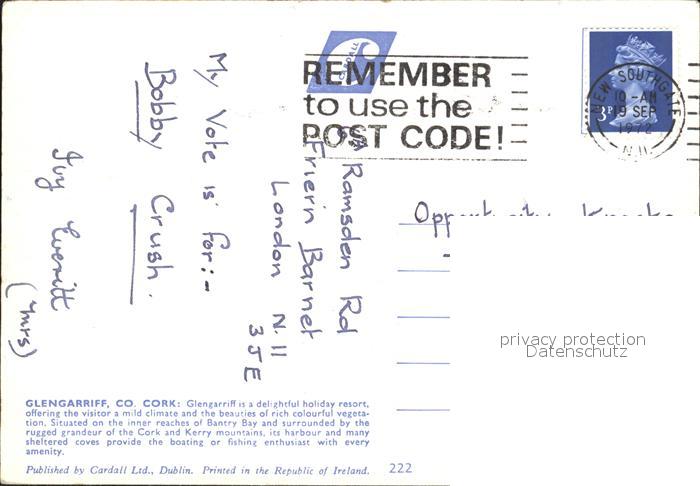 CARDALL
REMEMBER
to use the
POST CODE!
NEW SOUTHGATE
10 - AM
19 SEP
1972
N.11.
3P
Ramsden Rd
Friern Barnet
London N 11
3JE
My Vote is for:-
Bobby Crush.
Ivy Everitt
(Mrs)
Opportunity Knocks
privacy protection
Datenschutz
GLENGARRIFF, CO. CORK: Glengarriff is a delightful holiday resort,
offering the visitor a mild climate and the beauties of rich colourful vegeta-
tion. Situated on the inner reaches of Bantry Bay and surrounded by the
rugged grandeur of the Cork and Kerry mountains, its harbour and many
sheltered coves provide the boating or fishing enthusiast with every
amenity.
Published by Cardall Ltd., Dublin. Printed in the Republic of Ireland. 222